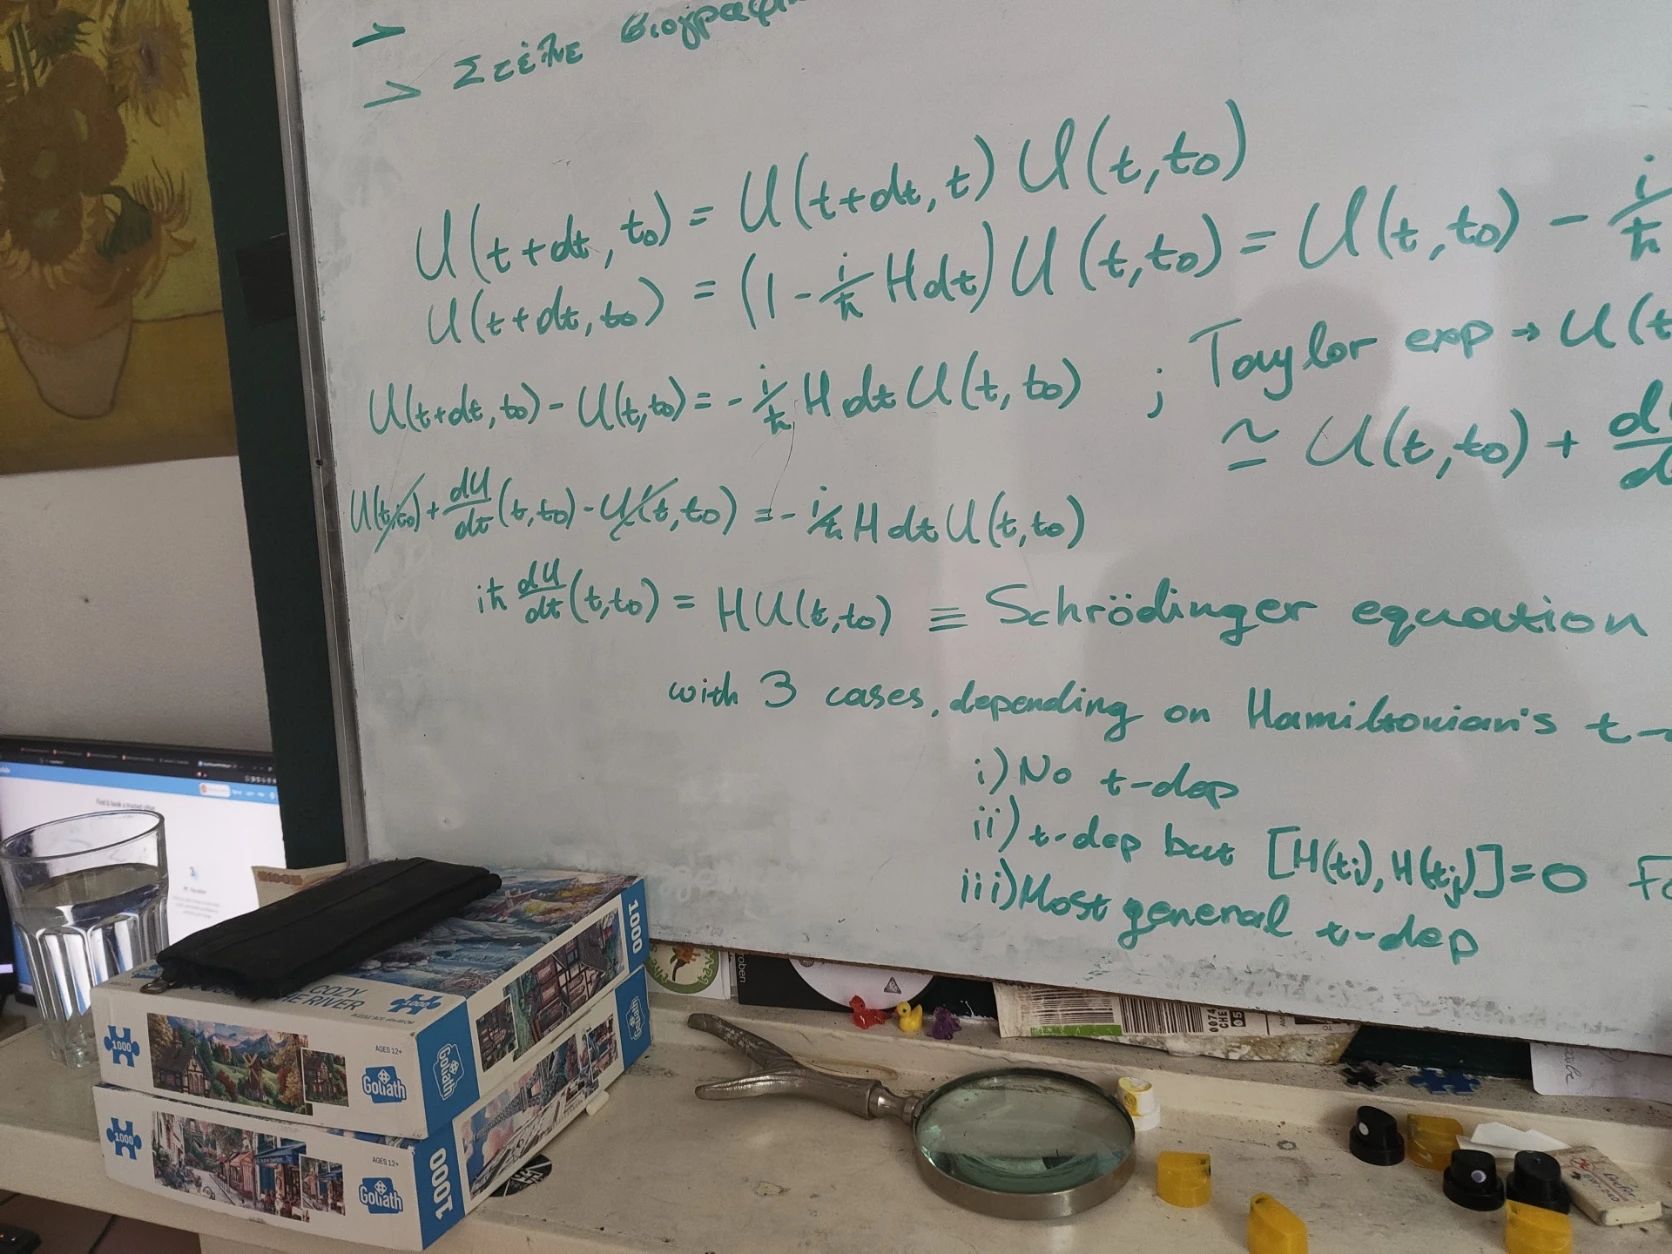 > Στείλε βιογραφι
U(t+dt, t₀) = U(t+dt, t) U(t, t₀)
U(t+dt, t₀) = (1 - i/ħ H dt) U(t, t₀) = U(t, t₀) - i/ħ
U(t+dt, t₀) - U(t, t₀) = - i/ħ H dt U(t, t₀) ; Taylor exp → U(t
≃ U(t, t₀) + dU/d
U(t,t₀) + dU/dt (t,t₀) - U(t,t₀) = - i/ħ H dt U(t,t₀)
iħ dU/dt (t,t₀) = H U(t,t₀) ≡ Schrödinger equation
with 3 cases, depending on Hamiltonian's t-
i) No t-dep
ii) t-dep but [H(ti), H(tj)]=0 Fo
iii) Most general t-dep
COZY
THE RIVER
1000
1000
AGES 12+
Goliath
Goliath
1000
1000
AGES 12+
Goliath
1000